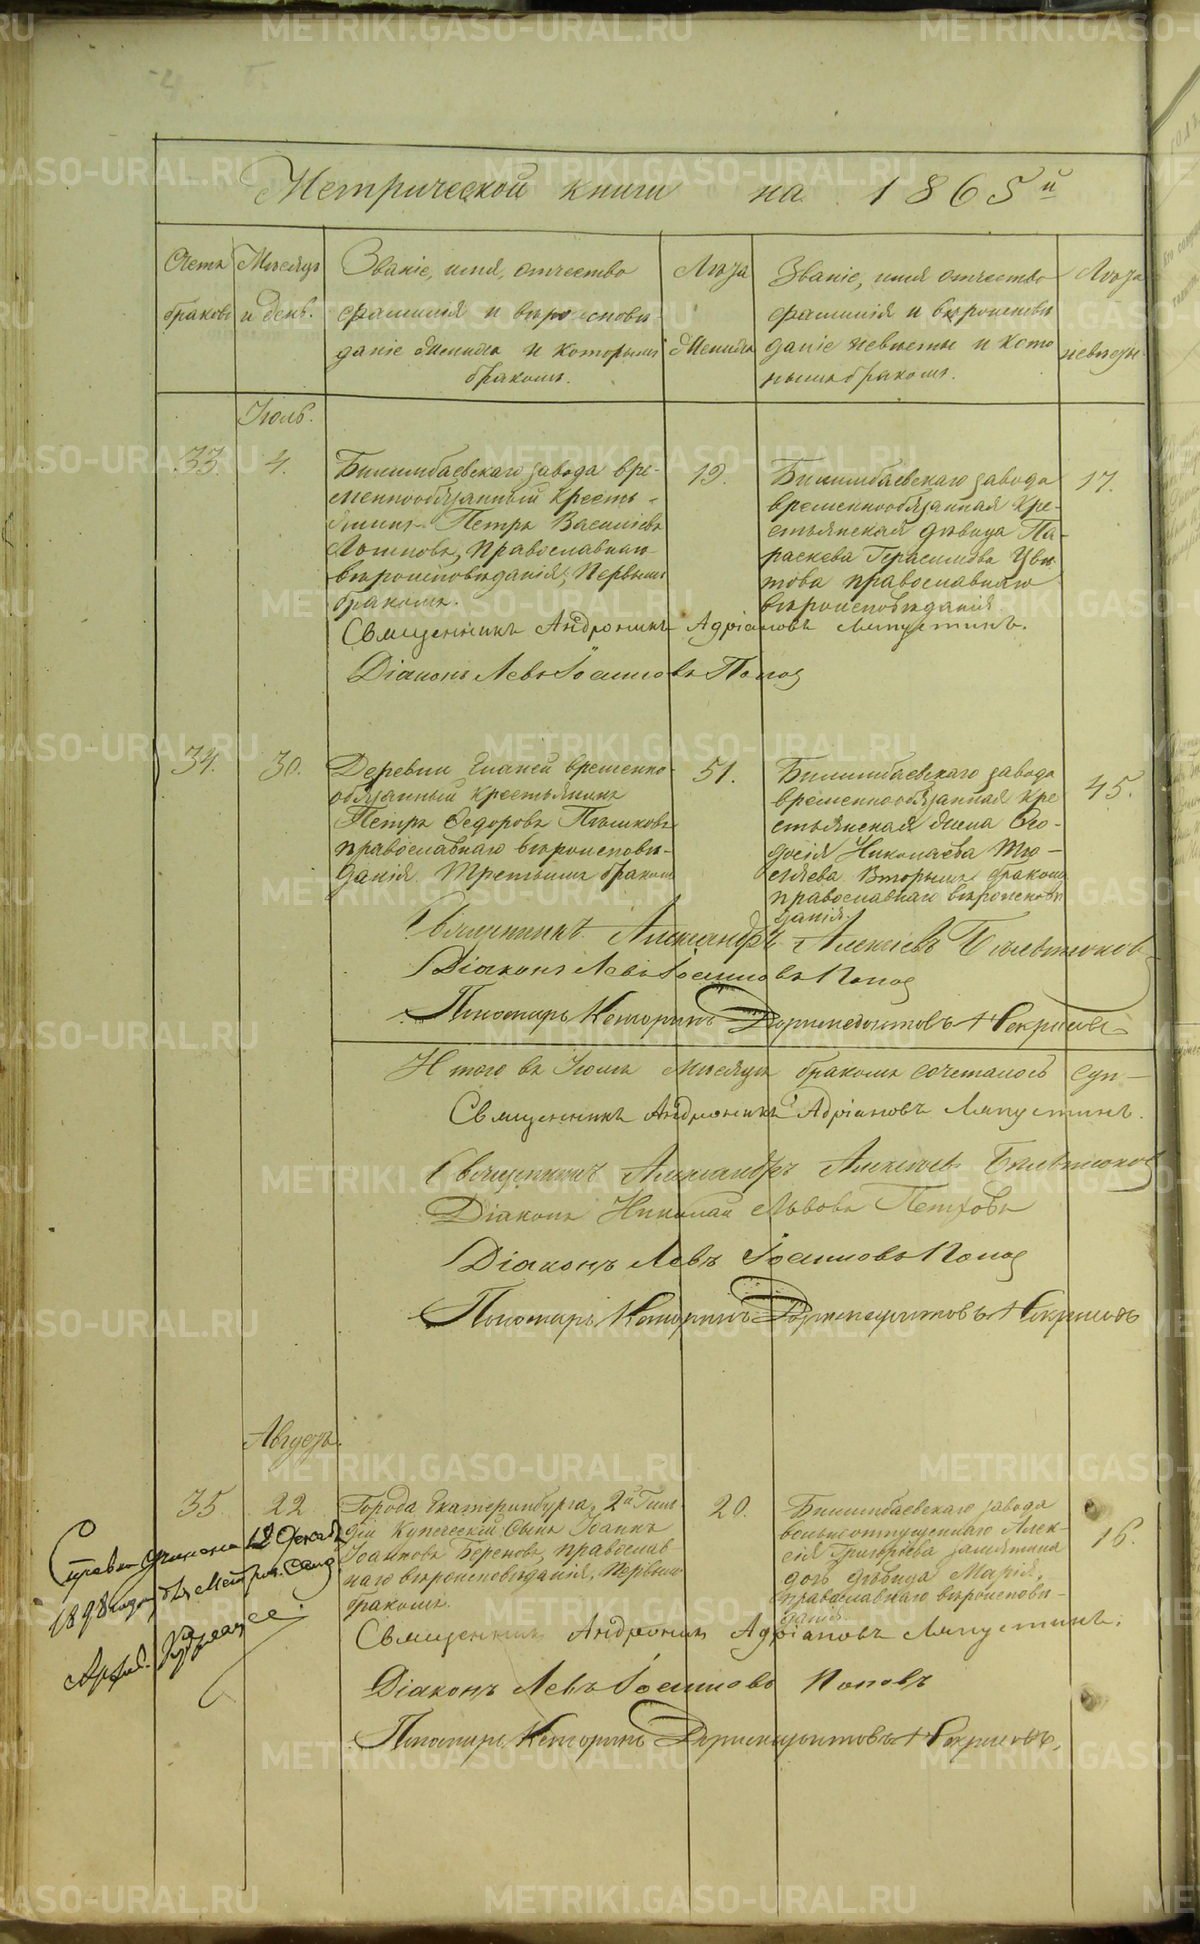 Метрической книги на 1865й
Счетъ браковъ
Мѣсяцъ и день.
Званіе, имя, отчество
фамилія и вѣроисповѣ-
даніе жениха и которымъ
бракомъ.
Лѣта жениха
Званіе, имя отчество
фамилія и вѣроисповѣ
даніе невѣсты и кото
рымъ бракомъ.
Лѣта невѣсты
Іюль.
33. 4.
Билимбаевскаго завода вре-
меннообязанный кресть-
янинъ Петръ Василіевъ
православнаго
вѣроисповѣданія, первымъ
бракомъ.
19.
Билимбаевскаго завода
временнообязанная кре-
стьянская дѣвица Па-
раскева Герасимова
православнаго
вѣроисповѣданія.
17.
Священникъ Андроникъ Адріановъ Ляпустинъ.
Діаконъ Левъ Іоанновъ Попов
34. 30.
Деревни временно-
обязанный крестьянинъ
Петръ Ѳедоровъ
православнаго вѣроисповѣ-
данія третьимъ бракомъ
51.
Билимбаевскаго завода
временнообязанная кре
стьянская жена Ѳео-
досія Николаева
вторымъ бракомъ
православнаго вѣроисповѣ
данія.
45.
Священникъ Александръ Алексѣевъ
Діаконъ Левъ Іоанновъ Попов
Пономарь Доримедонтовъ Некрасовъ
Итого въ Іюлѣ мѣсяцѣ бракомъ сочеталось
Священникъ Андроникъ Адріановъ Ляпустинъ.
Священникъ Александръ Алексѣевъ
Діаконъ Николай Львовъ Петровъ
Діаконъ Левъ Іоанновъ Попов
Пономарь Доримедонтовъ Некрасовъ
Августъ.
35 22
Города Екатеринбурга, 2й Гиль
діи Купеческій сынъ Іоаннъ
Іоанновъ православ
наго вѣроисповѣданія, первымъ
бракомъ.
20.
Билимбаевскаго завода
вольноотпущеннаго Алек-
сія Григорьева Замятина
дочь дѣвица Марія,
православнаго вѣроисповѣ-
данія.
16.
Справка учинена 12 Декаб
1898 года
Священникъ Андроникъ Адріановъ Ляпустинъ.
Діаконъ Левъ Іоанновъ Поповъ
Пономарь Доримедонтовъ Некрасовъ,
METRIKI.GASO-URAL.RU